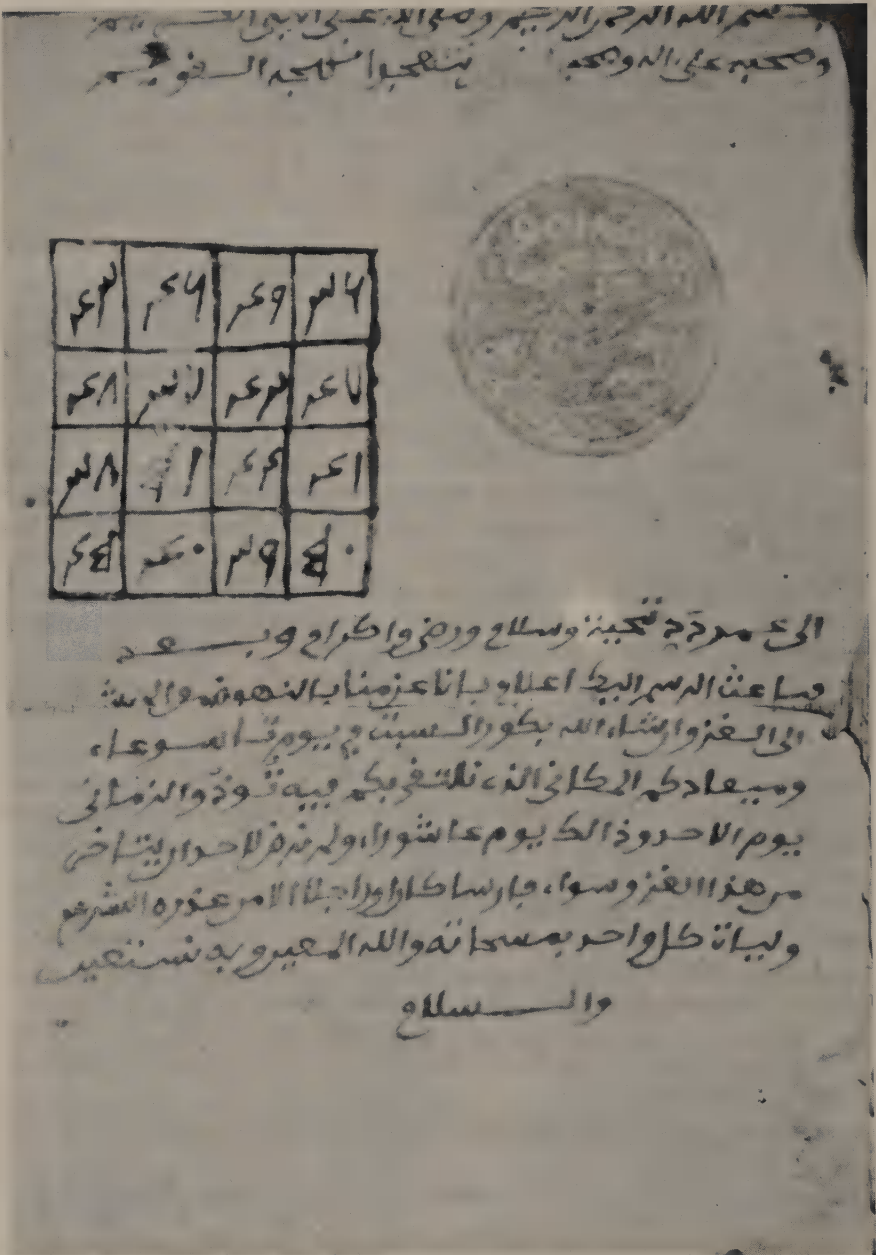 بسم الله الرحمن الرحيم وصلى الله على النبي الكريم
وصحبه على اله وصحبه نهجه القويم
٣٦ ٤٩ ٤٦ ٤٣
٤٧ ٤٢ ٣٧ ٤٨
٤١ ٤٤ ٣٨
٥٠ ٣٩ ٤٠ ٤٥
الى عمر دَدِ تحية وسلام ورضى واكرام وبعد
فباعث الرسم اليك اعلام بانا عزمنا بالنهوض
الى الغزو ان شاء الله بكور السبت في يوم تاسوعاء
وميعادكم المكاني الذى نلتقى بكم فيه ثوذو والزمانى
يوم الاحد وذالك يوم عاشوراء ولم نرض لاحد ان يتاخر
من هذا الغزو سواء فارسا كان او راجلا الا من عذره الشرع
وليات كل واحد بمسحاته والله المعين وبه نستعين
والسلام